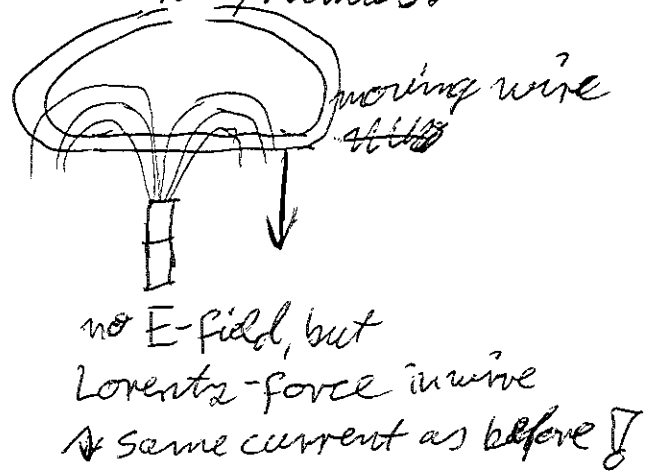 moving wire
no E-field, but
Lorentz-force in wire
same current as before !